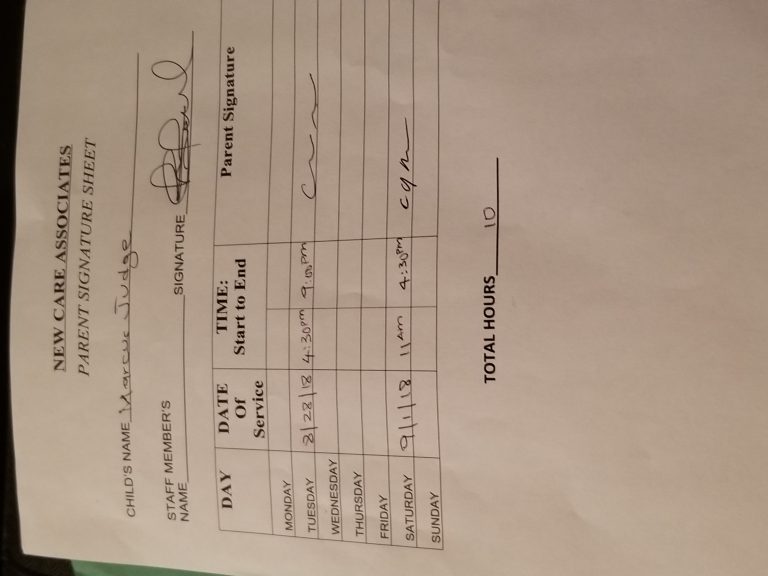 NEW CARE ASSOCIATES
PARENT SIGNATURE SHEET
CHILD'S NAME Marcus Judge
STAFF MEMBER'S
NAME SIGNATURE
DAY DATE Of Service TIME: Start to End Parent Signature
MONDAY
TUESDAY 8/28/18 4:30pm 9:00pm
WEDNESDAY
THURSDAY
FRIDAY
SATURDAY 9/1/18 11am 4:30pm
SUNDAY
TOTAL HOURS 10